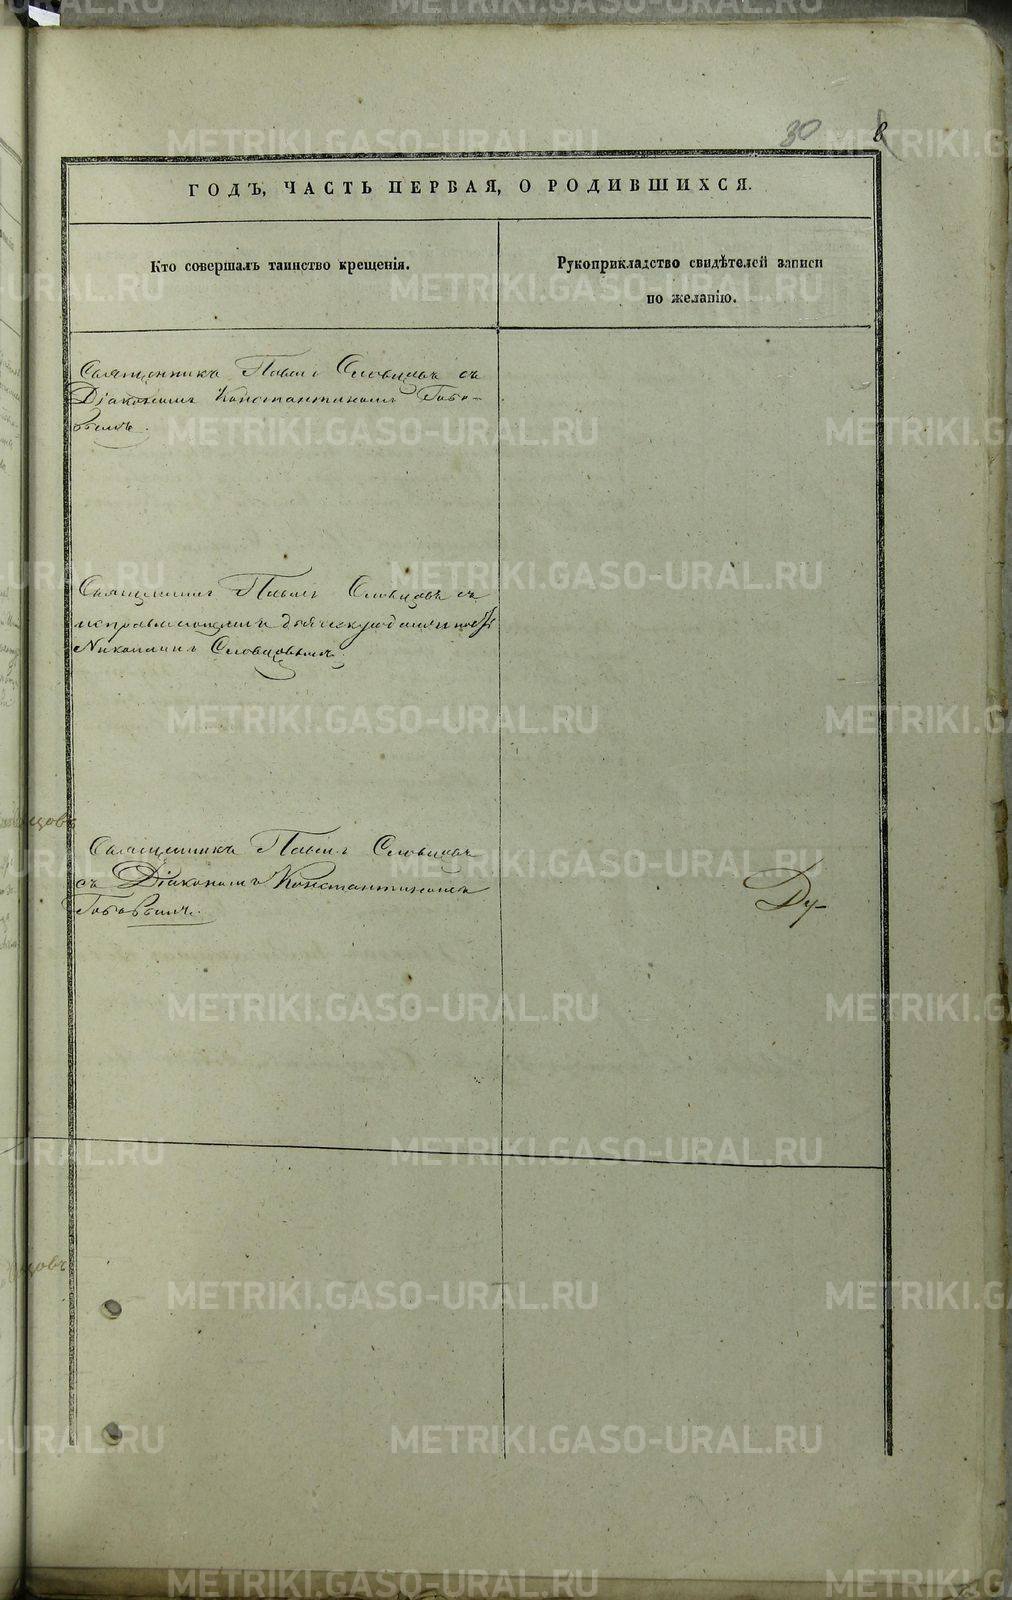 30 8
ГОДЪ, ЧАСТЬ ПЕРВАЯ, О РОДИВШИХСЯ.
Кто совершалъ таинство крещенія.
Рукоприкладство свидѣтелей записи
по желанію.
Священникъ Павелъ Словцовъ съ
Діакономъ Константиномъ Гово-
Священникъ Павелъ Словцовъ съ
исправляющимъ
Николаемъ Словцовымъ.
Священникъ Павелъ Словцовъ
съ Діакономъ Константиномъ
Ду-
METRIKI.GASO-URAL.RU